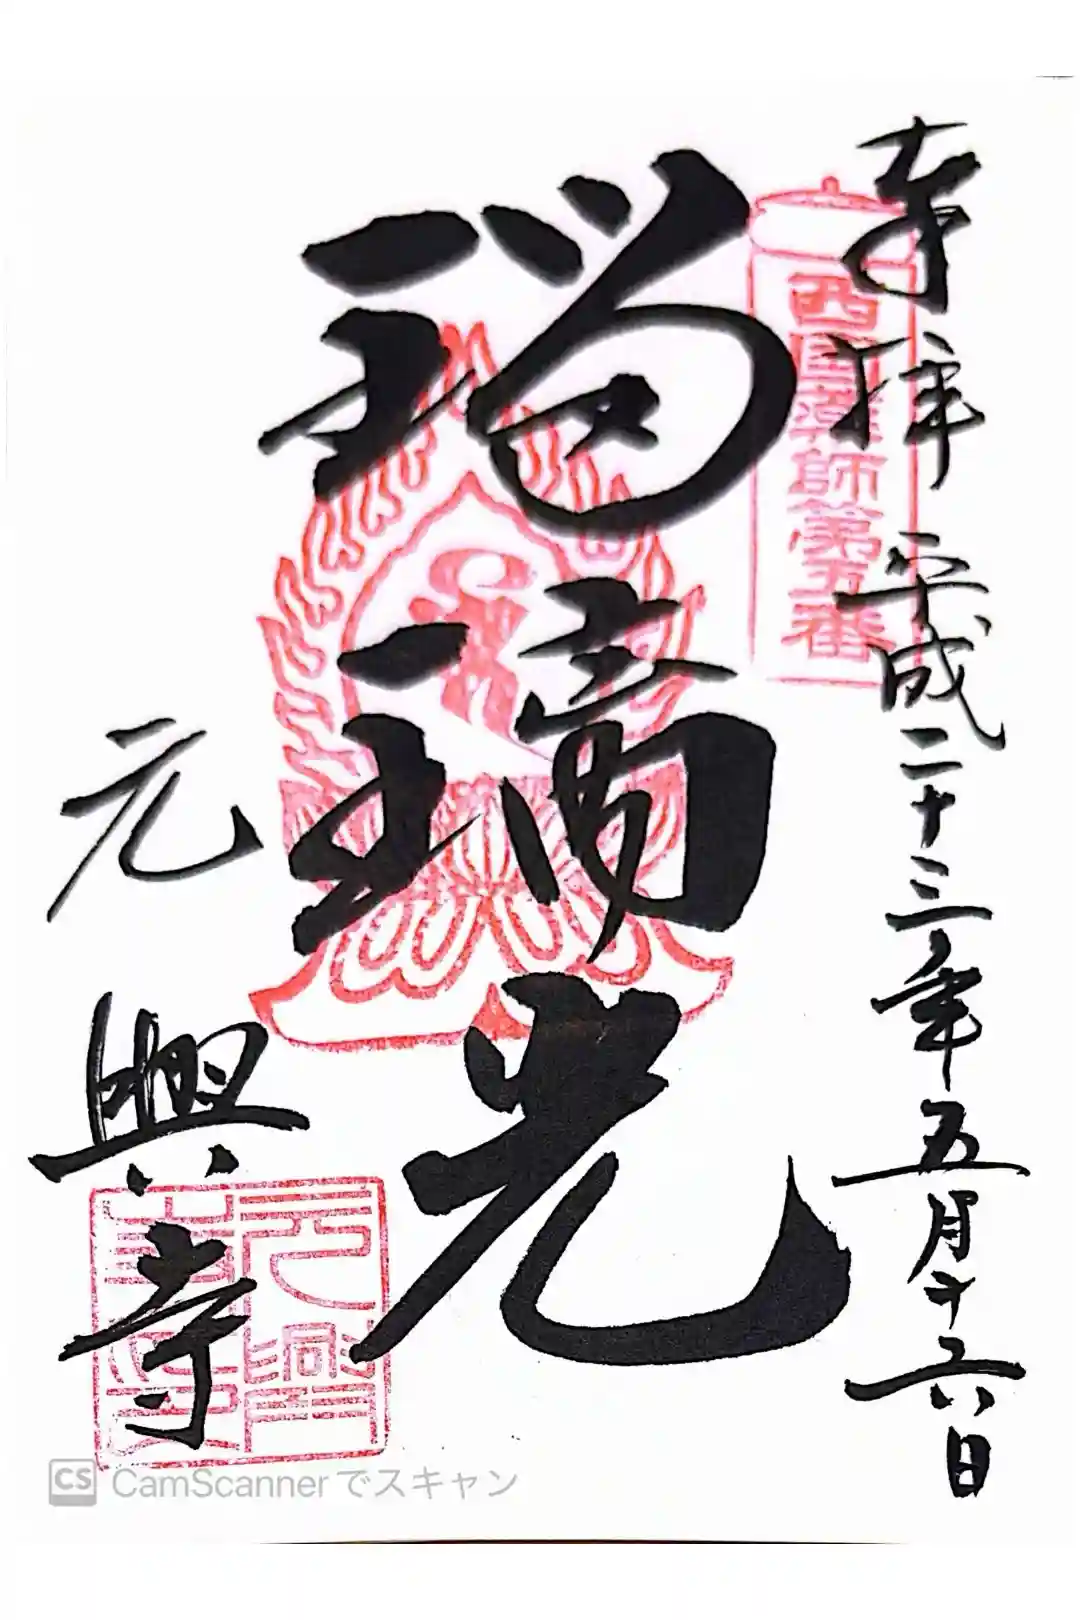 奉拝 平成二十三年五月十六日
西国薬師第五番
瑠璃光
元興寺
CS CamScannerでスキャン